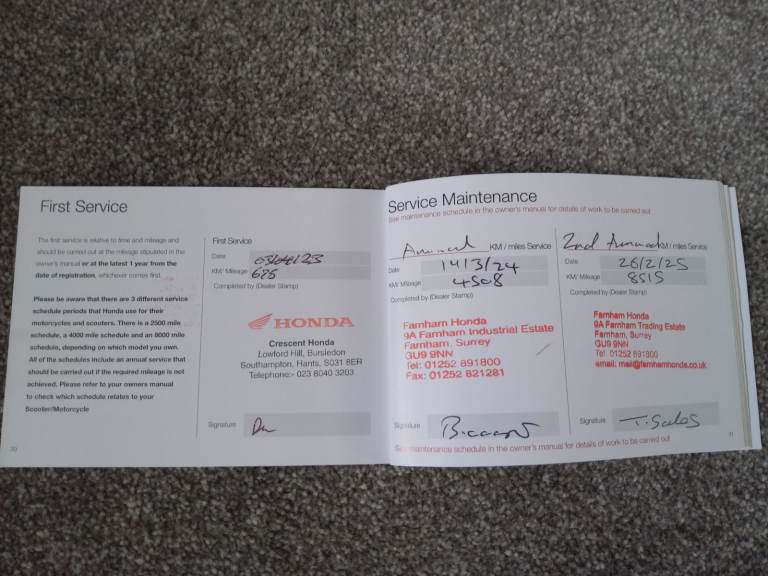 First Service
The first service is relative to time and mileage and
should be carried out at the mileage stipulated in the
owner's manual or at the latest 1 year from the
date of registration, whichever comes first.
Please be aware that there are 3 different service
schedule periods that Honda use for their
motorcycles and scooters. There is a 2500 mile
schedule, a 4000 mile schedule and an 8000 mile
schedule, depending on which model you own.
All of the schedules include an annual service that
should be carried out if the required mileage is not
achieved. Please refer to your owners manual
to check which schedule relates to your
Scooter/Motorcycle
First Service
Date
KM/ Mileage 625
Completed by (Dealer Stamp)
HONDA
Crescent Honda
Lowford Hill, Bursledon
Southampton, Hants, S031 8ER
Telephone:- 023 8040 3203
Signature
Service Maintenance
See maintenance schedule in the owner's manual for details of work to be carried out
Annual KM / miles Service
Date 14/3/24
KM/ Mileage 4508
Completed by (Dealer Stamp)
Farnham Honda
9A Farnham Industrial Estate
Farnham, Surrey
GU9 9NN
Tel: 01252 891800
Fax: 01252 821281
Signature
2nd Annual KM / miles Service
Date 26/2/25
KM/ Mileage 8515
Completed by (Dealer Stamp)
Farnham Honda
9A Farnham Trading Estate
Farnham, Surrey
GU9 9NN
Tel: 01252 891800
email: mail@farnhamhonda.co.uk
Signature T. Scales
See maintenance schedule in the owner's manual for details of work to be carried out